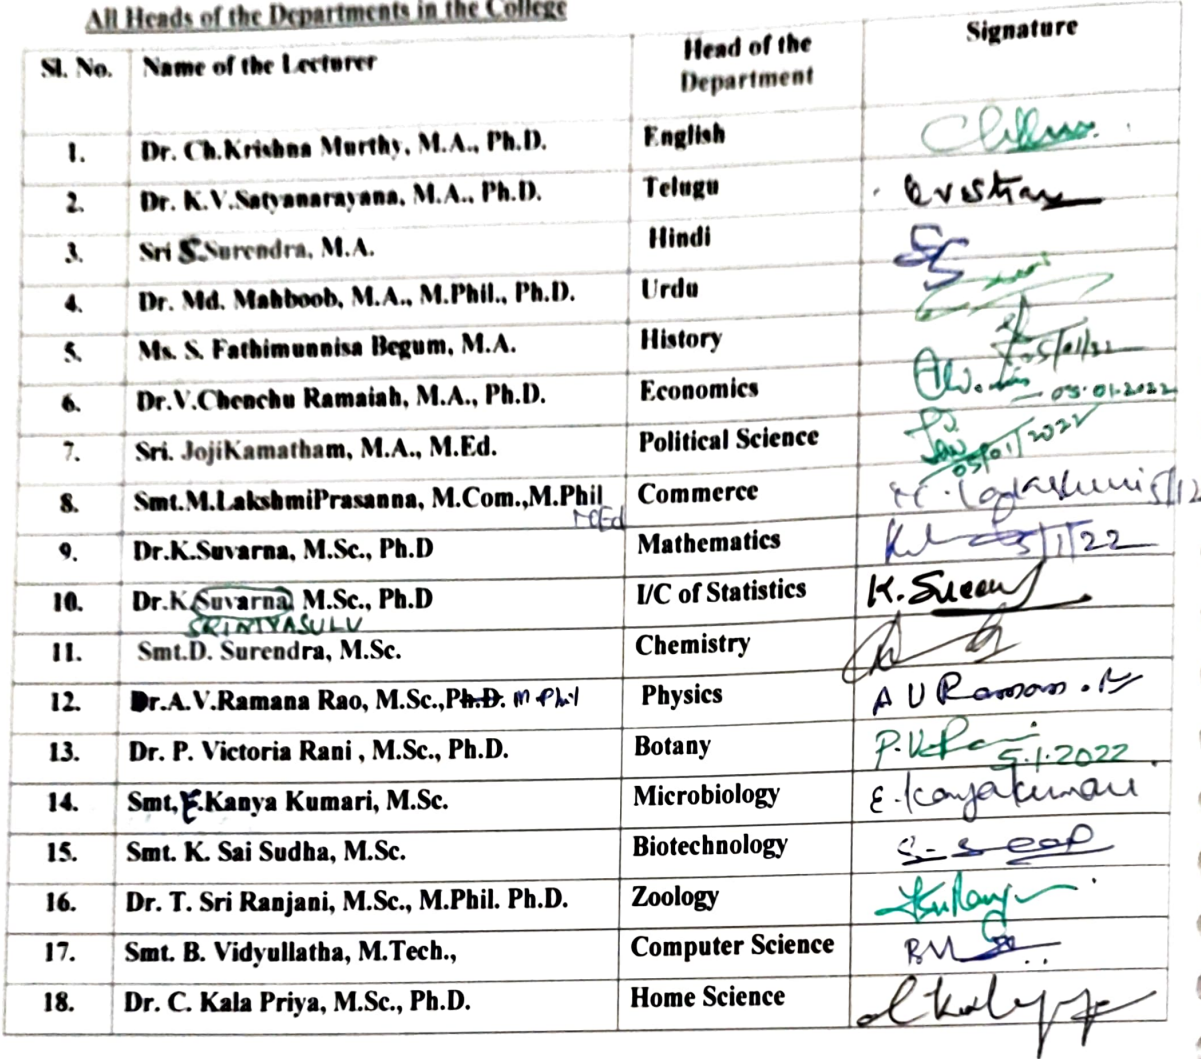 All Heads of the Departments in the College
Sl. No. Name of the Lecturer Head of the Department Signature
1. Dr. Ch.Krishna Murthy, M.A., Ph.D. English
2. Dr. K.V.Satyanarayana, M.A., Ph.D. Telugu
3. Sri S.Surendra, M.A. Hindi
4. Dr. Md. Mahboob, M.A., M.Phil., Ph.D. Urdu
5. Ms. S. Fathimunnisa Begum, M.A. History 5/01/22
6. Dr.V.Chenchu Ramaiah, M.A., Ph.D. Economics 05.01.2022
7. Sri. JojiKamatham, M.A., M.Ed. Political Science 05/01/2022
8. Smt.M.LakshmiPrasanna, M.Com.,M.Phil Commerce
M.Ed
9. Dr.K.Suvarna, M.Sc., Ph.D Mathematics 5/1/22
10. Dr.K.Suvarna, M.Sc., Ph.D I/C of Statistics
SRINIVASULU
11. Smt.D. Surendra, M.Sc. Chemistry
12. Dr.A.V.Ramana Rao, M.Sc.,Ph.D. M Phil Physics
13. Dr. P. Victoria Rani , M.Sc., Ph.D. Botany 5.1.2022
14. Smt, E.Kanya Kumari, M.Sc. Microbiology E. Kanyakumari
15. Smt. K. Sai Sudha, M.Sc. Biotechnology
16. Dr. T. Sri Ranjani, M.Sc., M.Phil. Ph.D. Zoology
17. Smt. B. Vidyullatha, M.Tech., Computer Science
18. Dr. C. Kala Priya, M.Sc., Ph.D. Home Science